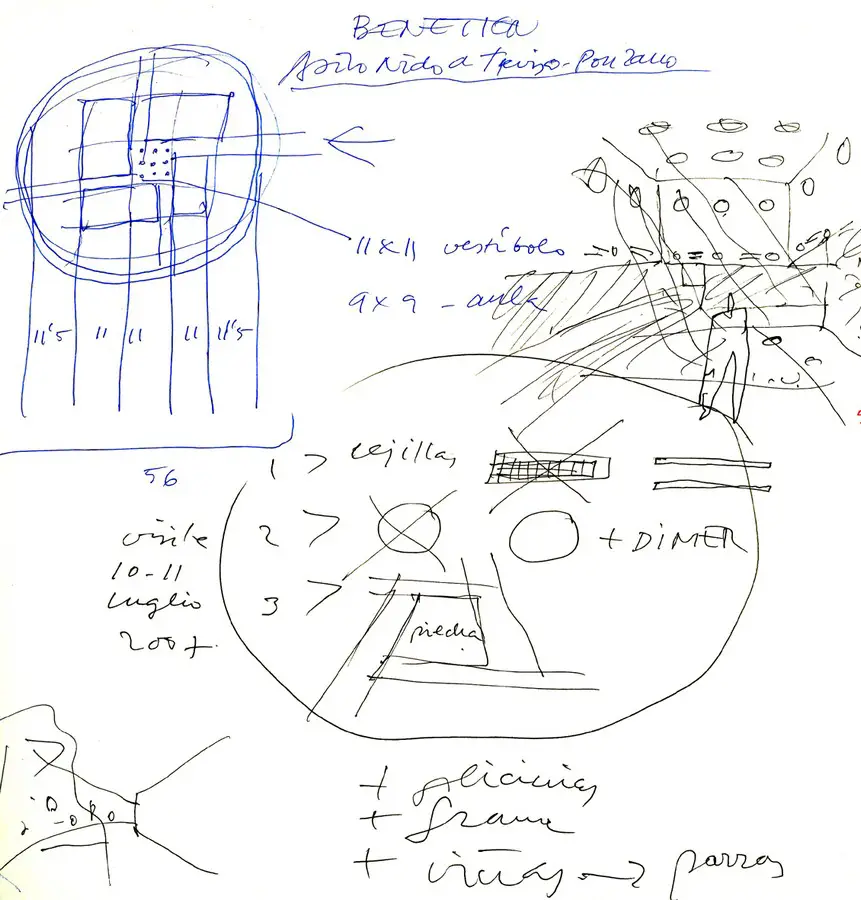 BENETTON
Asilo Nido a Treviso-Ponzano
11x11 vestíbolo
9x9 - aula
11'5 11 11 11 11'5
56
1 > rejillas
2 > + DIMER
3 > piedra
visite
10-11
luglio
2007.
+ glicinias
+ grama
+ viñas → parras